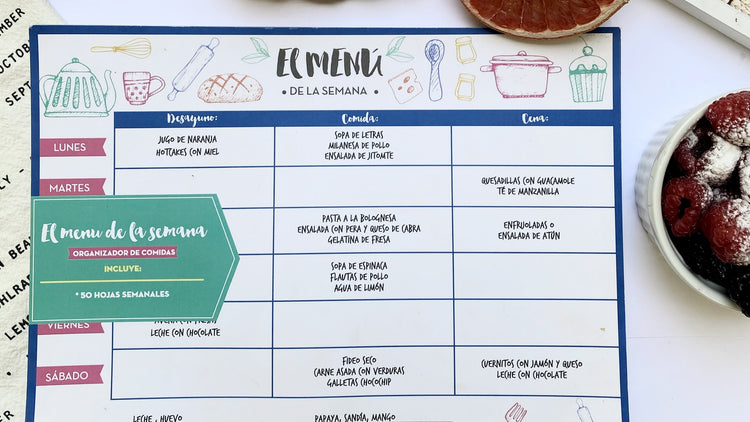 El MENÚ
• DE LA SEMANA •
Desayuno: Comida: Cena:
LUNES
JUGO DE NARANJA
HOTCAKES CON MIEL
SOPA DE LETRAS
MILANESA DE POLLO
ENSALADA DE JITOMTE
MARTES
QUESADILLAS CON GUACAMOLE
TÉ DE MANZANILLA
El menu de la semana
ORGANIZADOR DE COMIDAS
INCLUYE:
* 50 HOJAS SEMANALES
PASTA A LA BOLOGNESA
ENSALADA CON PERA Y QUESO DE CABRA
GELATINA DE FRESA
ENFRIJOLADAS O
ENSALADA DE ATÚN
SOPA DE ESPINACA
FLAUTAS DE POLLO
AGUA DE LIMÓN
VIERNES
LECHE CON CHOCOLATE
SÁBADO
FIDEO SECO
CARNE ASADA CON VERDURAS
GALLETAS CHOCOCHIP
CUERNITOS CON JAMÓN Y QUESO
LECHE CON CHOCOLATE
LECHE , HUEVO
PAPAYA, SANDÍA, MANGO